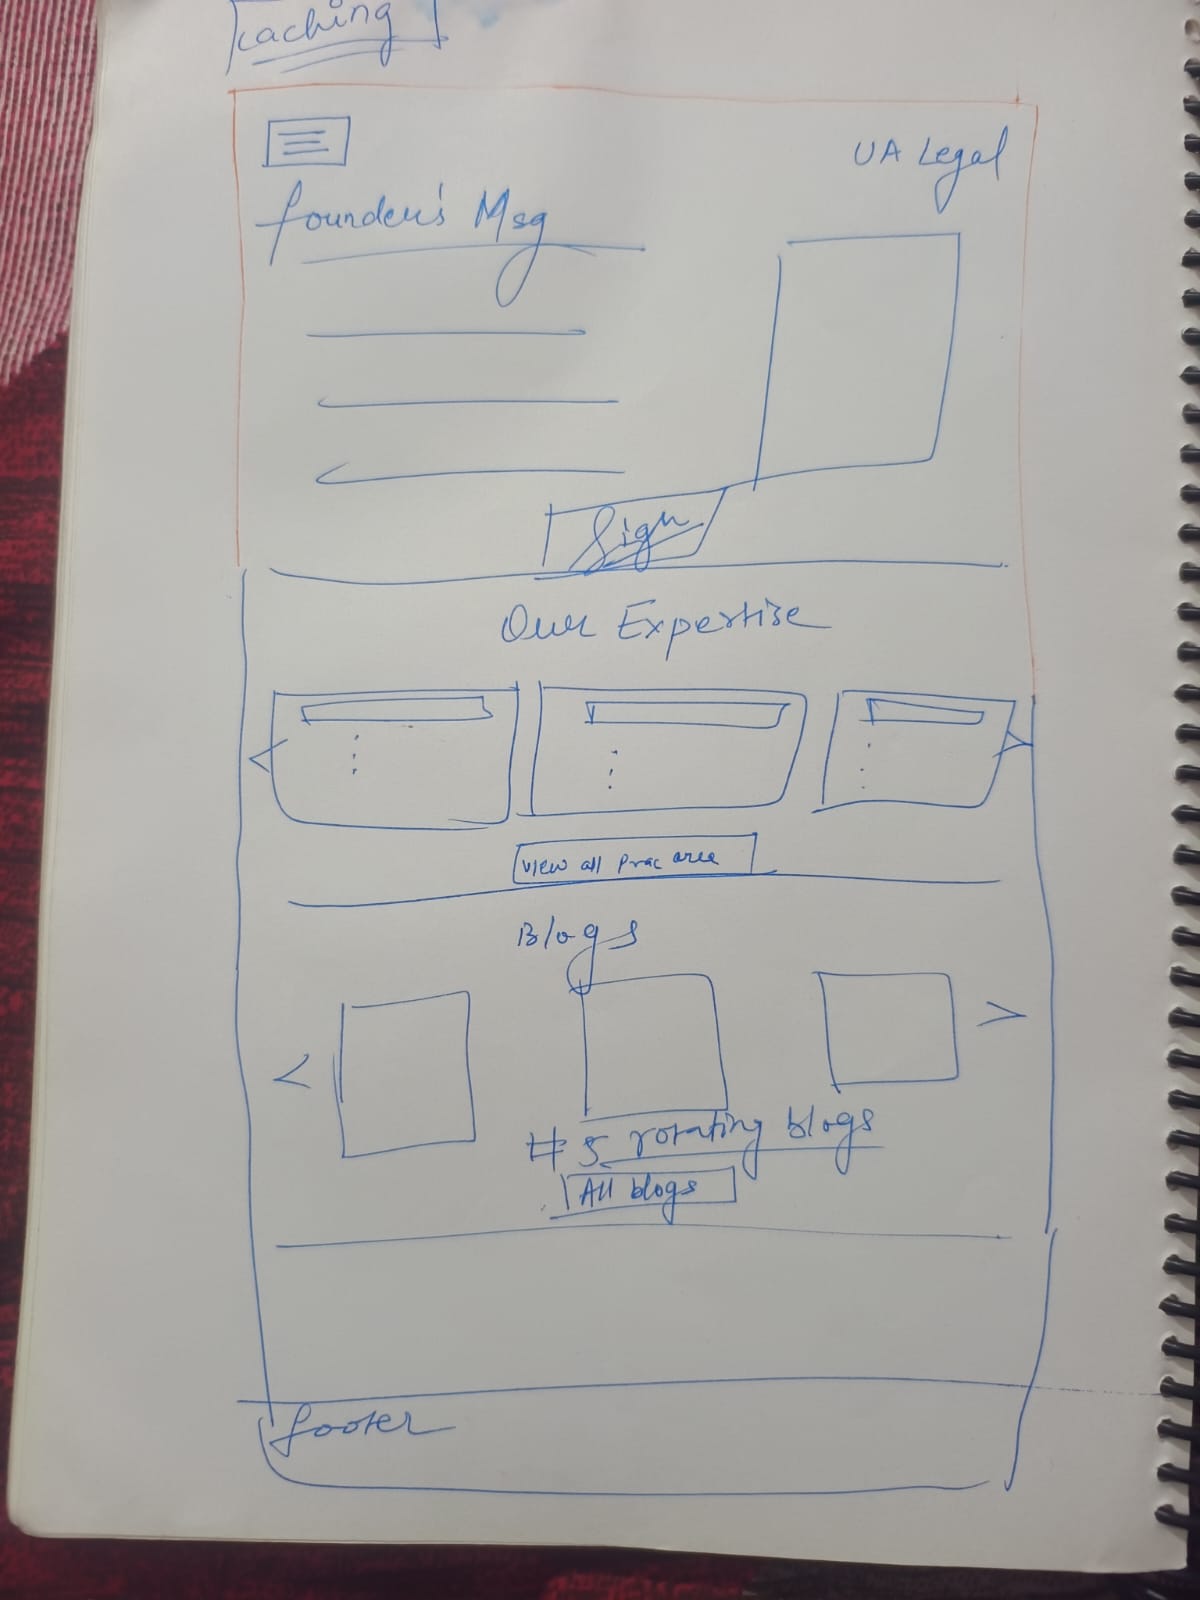 caching
UA Legal
founder's Msg
Sign
Our Expertise
< >
view all prac area
Blogs
< >
# 5 rotating blogs
All blogs
footer